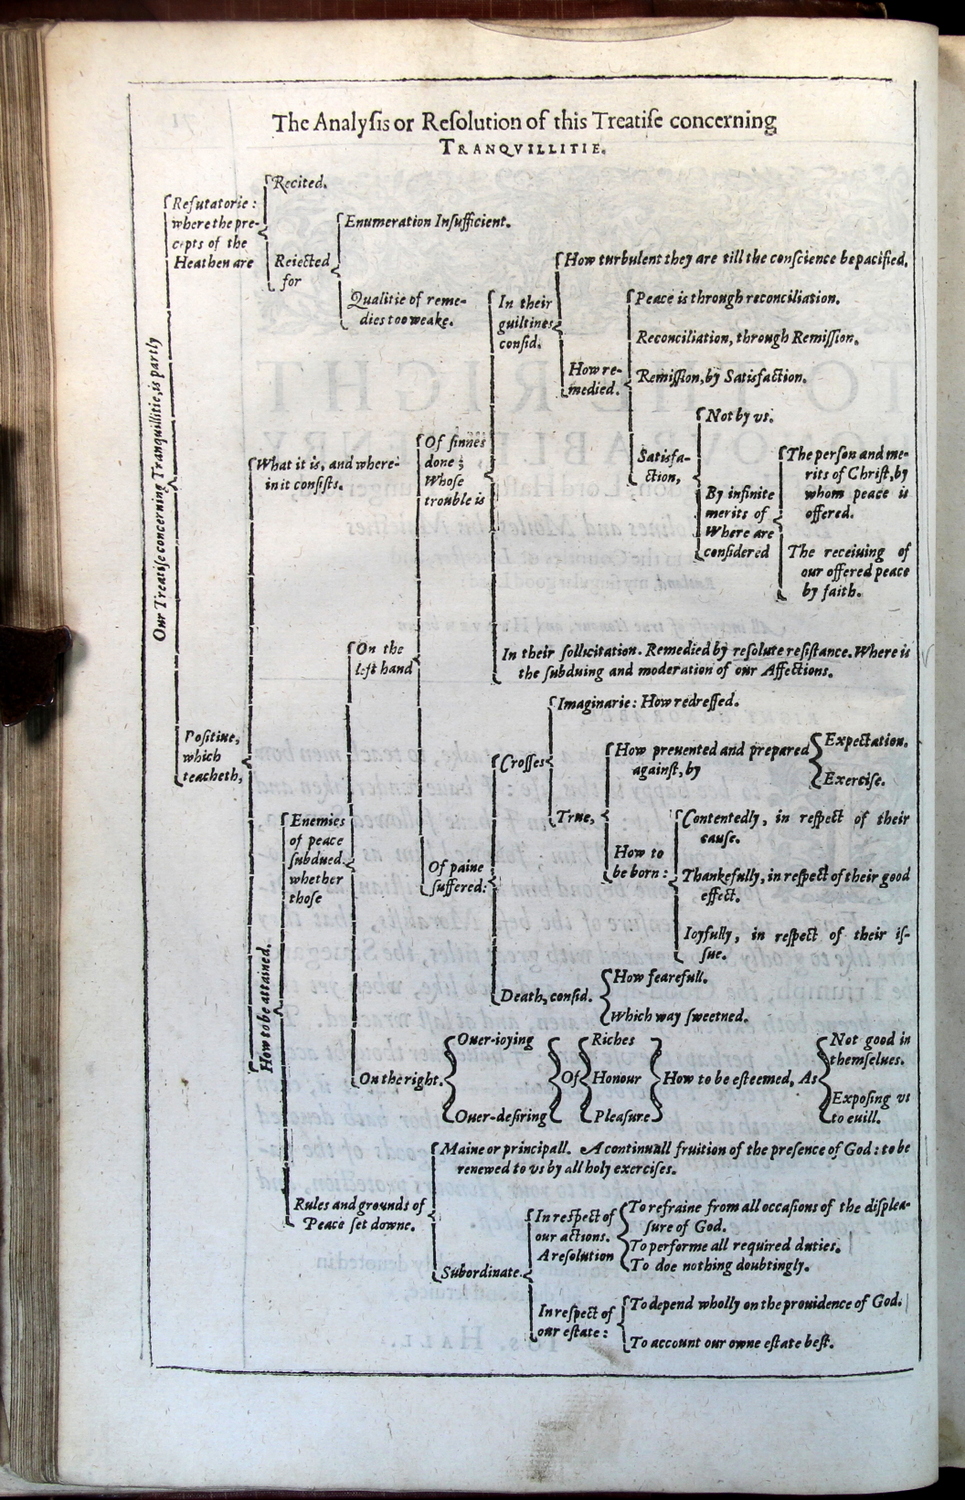 The Analyſis or Reſolution of this Treatiſe concerning
TRANQVILLITIE.
Our Treatiſe concerning Tranquillitie, is partly
Refutatorie:
where the pre-
cepts of the
Heathen are
Recited.
Reiected
for
Enumeration Inſufficient.
Qualitie of reme-
dies too weake.
Poſitiue,
which
teacheth,
What it is, and where-
in it conſiſts.
How to be attained.
Enemies
of peace
ſubdued,
whether
thoſe
On the
left hand
Of ſinnes
done;
Whoſe
trouble is
In their
guiltines
conſid.
How turbulent they are till the conſcience be pacified.
How re-
medied.
Peace is through reconciliation.
Reconciliation, through Remiſſion.
Remiſſion, by Satisfaction.
Satisfa-
ction,
Not by vs.
By infinite
merits of
Where are
conſidered
The perſon and me-
rits of Chriſt, by
whom peace is
offered.
The receiuing of
our offered peace
by faith.
In their ſollicitation. Remedied by reſolute reſiſtance. Where is
the ſubduing and moderation of our Affections.
Of paine
ſuffered:
Croſſes
Imaginarie: How redreſſed.
True,
How preuented and prepared
againſt, by
Expectation.
Exerciſe.
How to
be born:
Contentedly, in reſpect of their
cauſe.
Thankefully, in reſpect of their good
effect.
Ioyfully, in reſpect of their iſ-
ſue.
Death, conſid.
How fearefull.
Which way ſweetned.
On the right.
Ouer-ioying
Ouer-deſiring
Of
Riches
Honour
Pleaſure
How to be eſteemed, As
Not good in
themſelues.
Expoſing vs
to euill.
Rules and grounds of
Peace ſet downe.
Maine or principall. A continuall fruition of the preſence of God: to be
renewed to vs by all holy exerciſes.
Subordinate.
In reſpect of
our actions.
A reſolution
To refraine from all occaſions of the diſplea-
ſure of God.
To performe all required duties.
To doe nothing doubtingly.
In reſpect of
our eſtate:
To depend wholly on the prouidence of God.
To account our owne eſtate beſt.